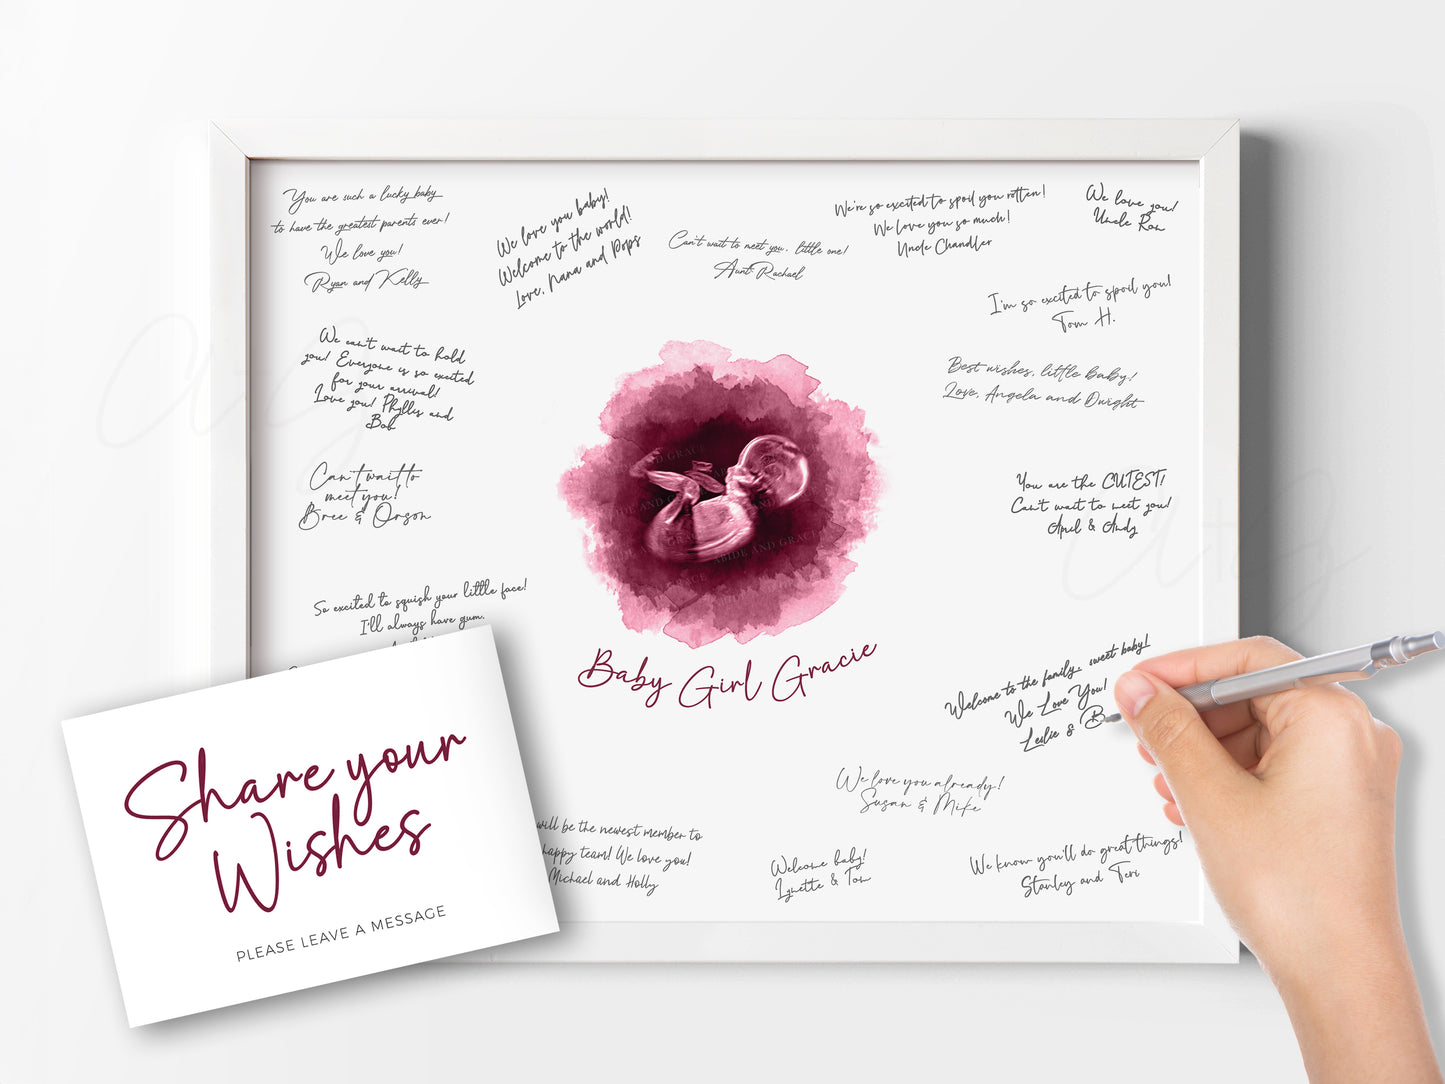 You are such a lucky baby
to have the greatest parents ever!
We love you!
Ryan and Kelly
We love you baby!
Welcome to the world!
Love, Nana and Pops
Can't wait to meet you, little one!
Aunt Rachael
We're so excited to spoil you rotten!
We love you so much!
Uncle Chandler
We love you!
Uncle Ron
I'm so excited to spoil you!
Tom H.
We can't wait to hold
you! Everyone is so excited
for your arrival!
Love you! Phyllis and
Bob
Best wishes, little baby!
Love, Angela and Dwight
Can't wait to
meet you!
Bree & Orson
You are the CUTEST!
Can't wait to meet you!
April & Andy
ABIDE AND GRACE
So excited to squish your little face!
I'll always have gum.
Baby Girl Gracie
Welcome to the family, sweet baby!
We Love You!
Leslie & B
Share your
Wishes
PLEASE LEAVE A MESSAGE
We love you already!
Susan & Mike
will be the newest member to
happy team! We love you!
Michael and Holly
Welcome baby!
Lynette & Tom
We know you'll do great things!
Stanley and Teri